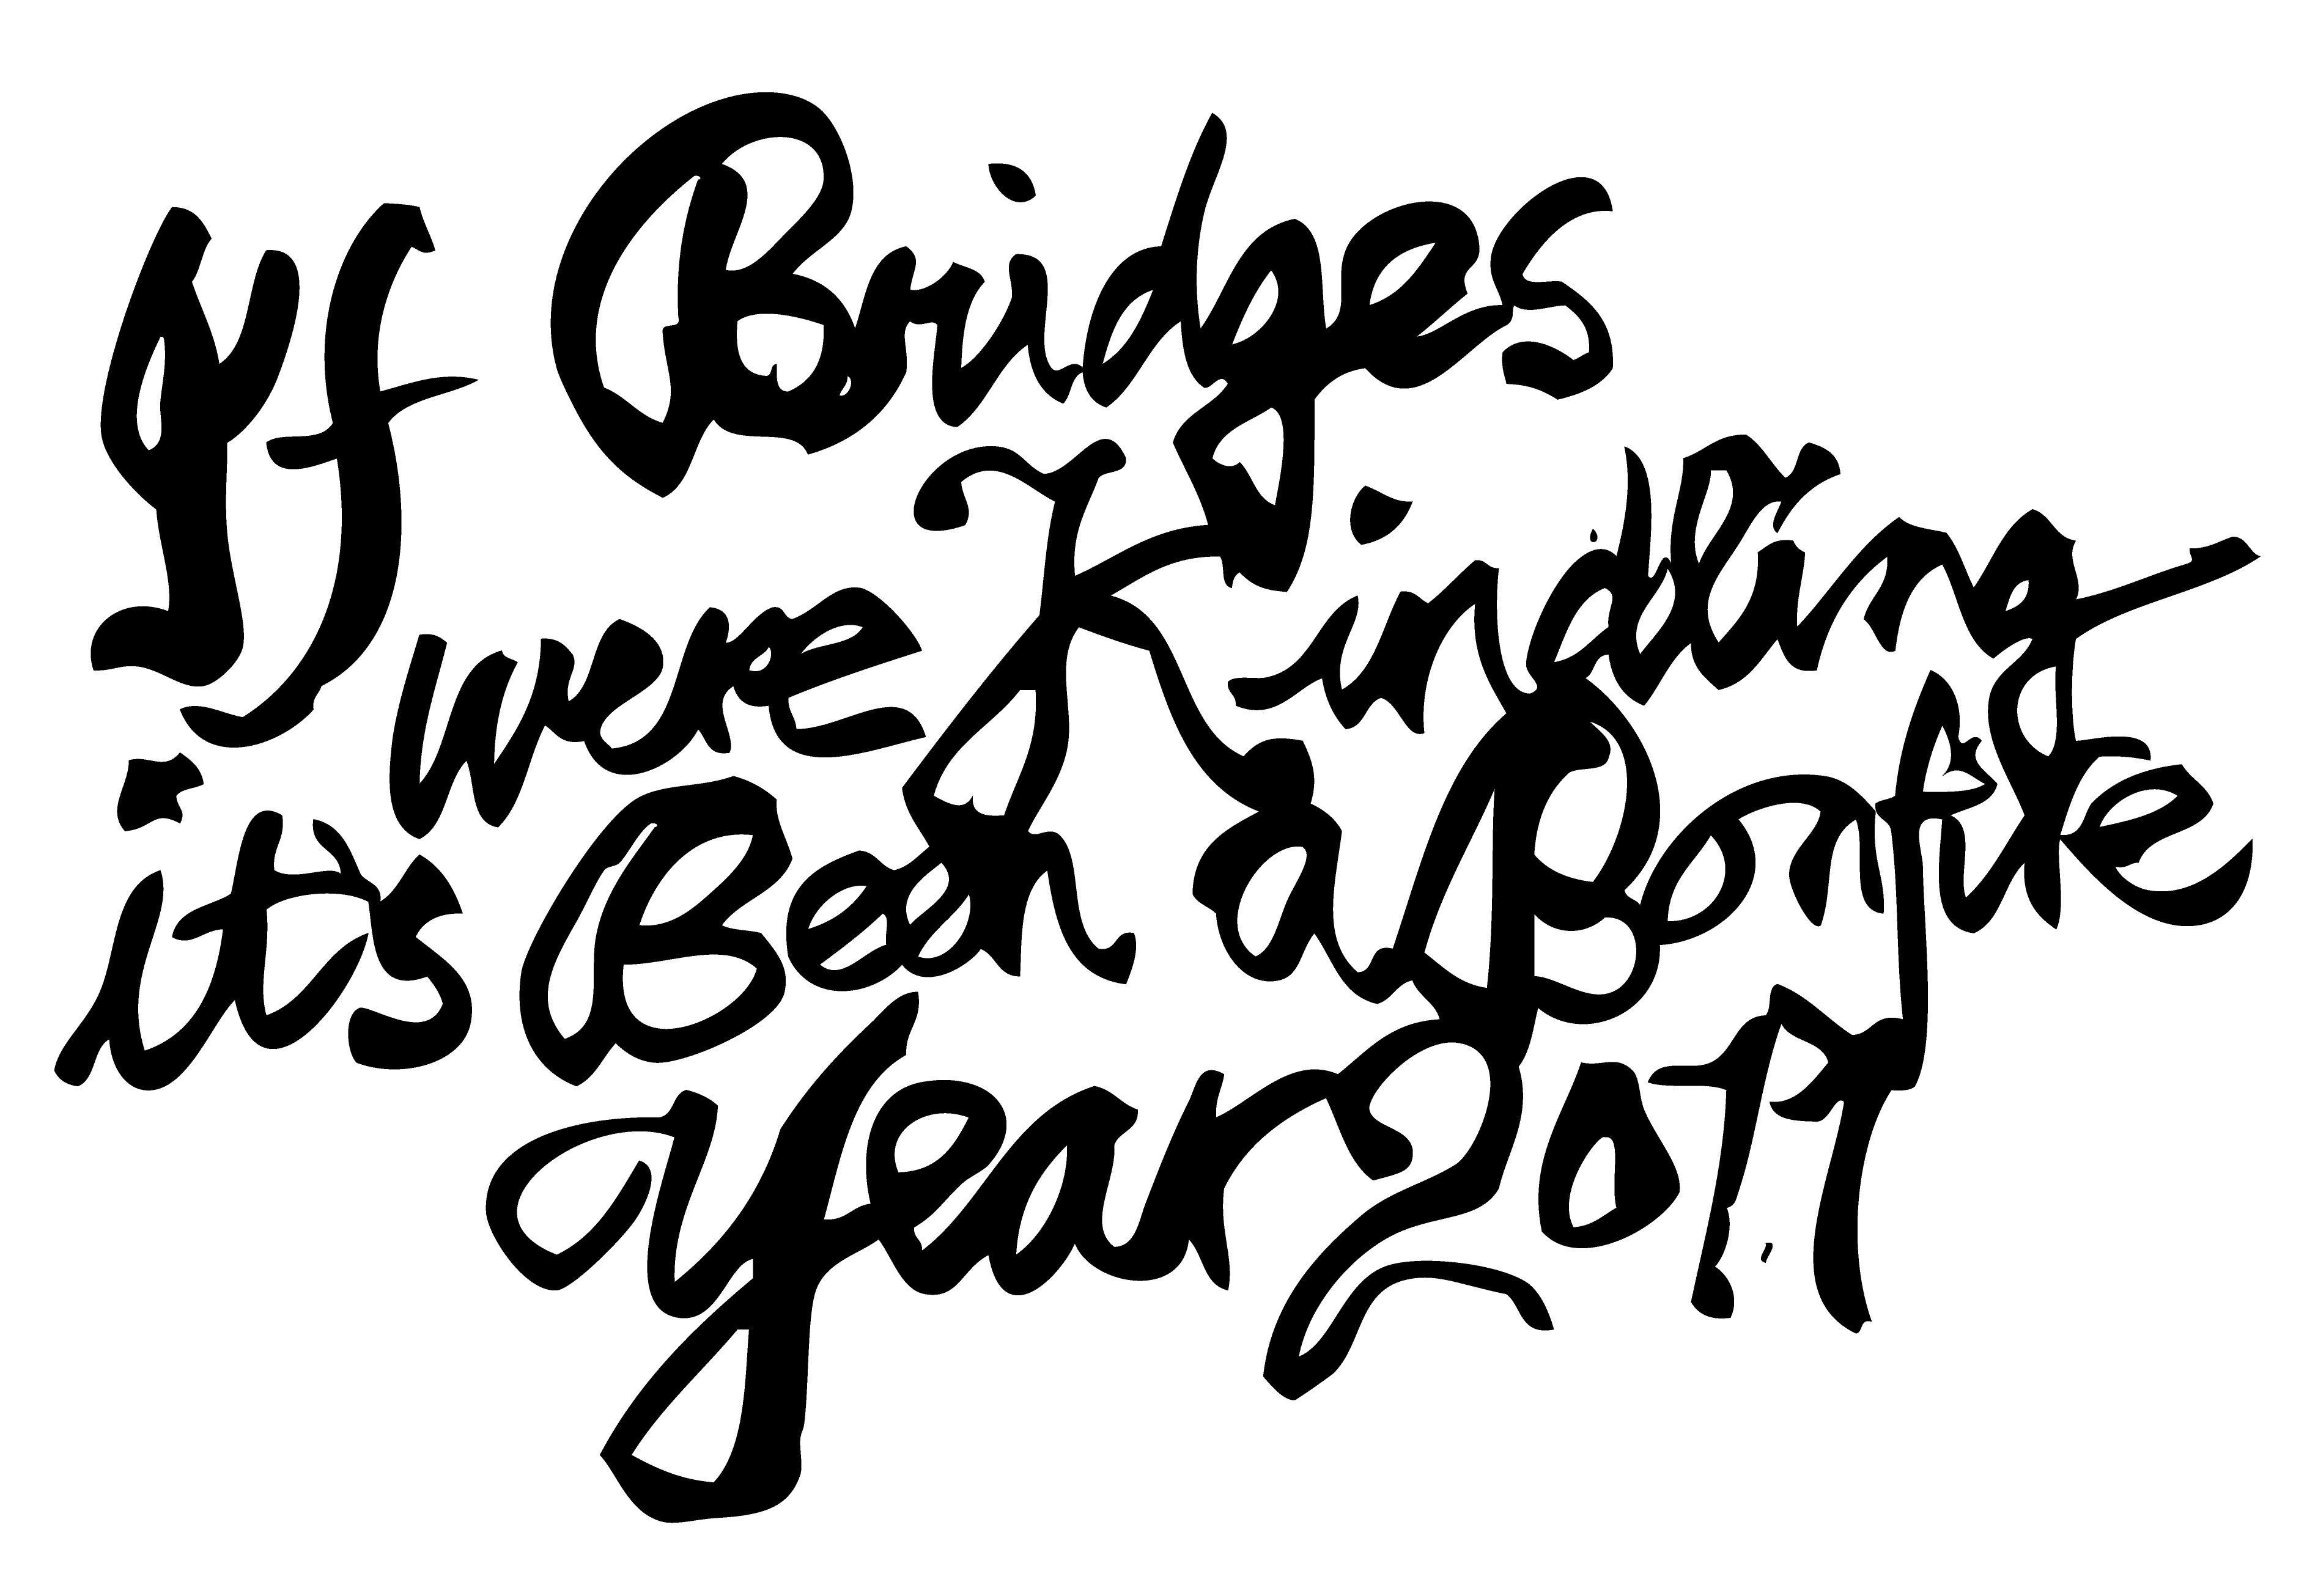 If Bridges
were Kindling
it's Been a Bonfire
year 2017